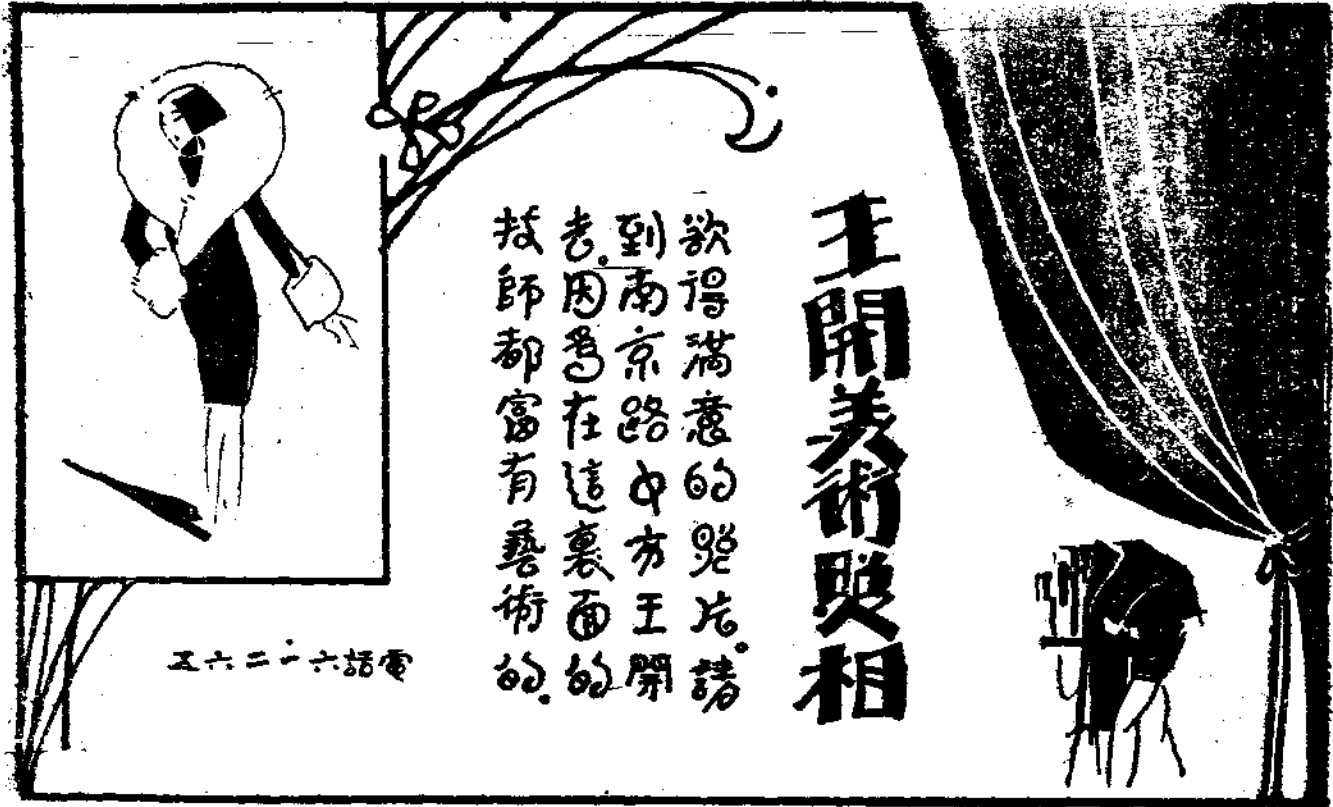 王開美術照相
欲得滿意的照片。請
到南京路中方王開
去。因爲在這裏面的
技師都富有藝術的.
電話六一二六五